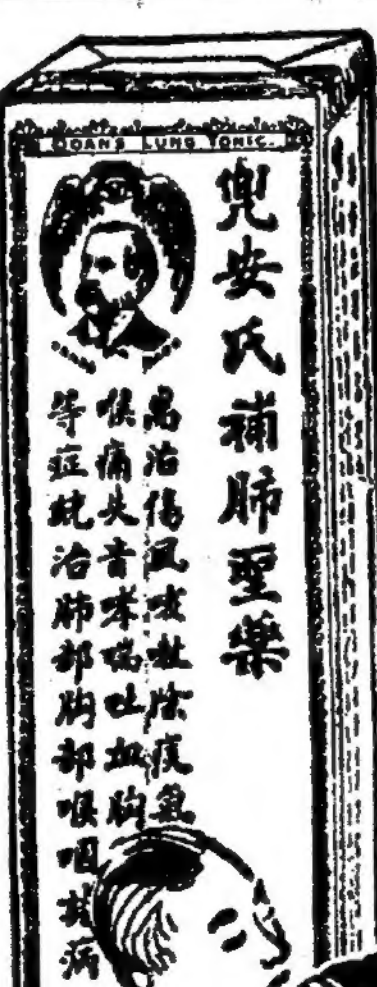 DOANS LUNG TONIC.
兜安氏補肺聖藥
治傷風咳除痰氣
喉痛失音哮喘吐加胸
等症統治肺部胸部喉咽諸病